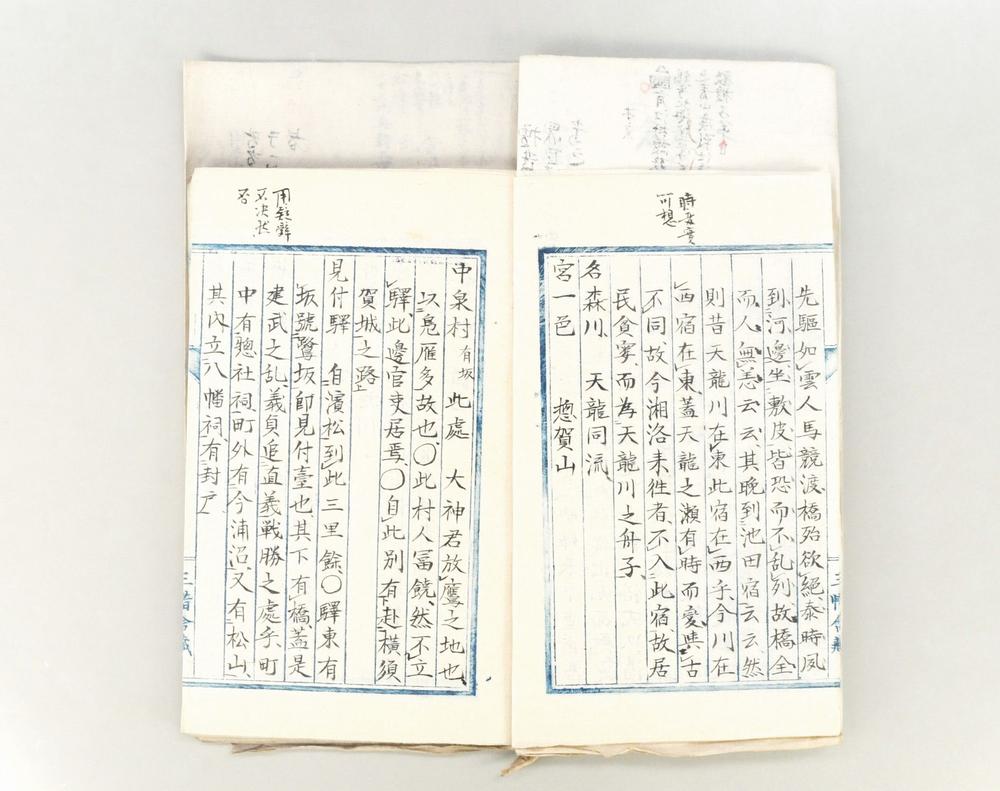 時
可想
先驅如雲人馬競渡橋殆欲絕泰時夙
到河邊坐敷皮皆恐而不乱列故橋全
而人無恙云云其晚到池田宿云云然
則昔天龍川在東此宿在西乎今川在
西宿在東蓋天龍之瀬有時而変與古
不同故今湘洛来徃者不入此宿故居
民貧寠而為天龍川之舟子
名森川 天龍同流
宮一色 摠賀山
用疑辭
不决然
否
中泉村有坂此處 大神君放鷹之地也
以鳬雁多故也〇此村人冨饒然不立
驛此邊官吏居焉〇自此別有赴橫須
賀城之路
見付驛 自濱松到此三里餘〇驛東有
坂號鷺坂即見付臺也其下有橋蓋是
建武之乱義貞追直義戦勝之處乎町
中有惣社祠町外有今浦沼又有松山
其內立八幡祠有封戸